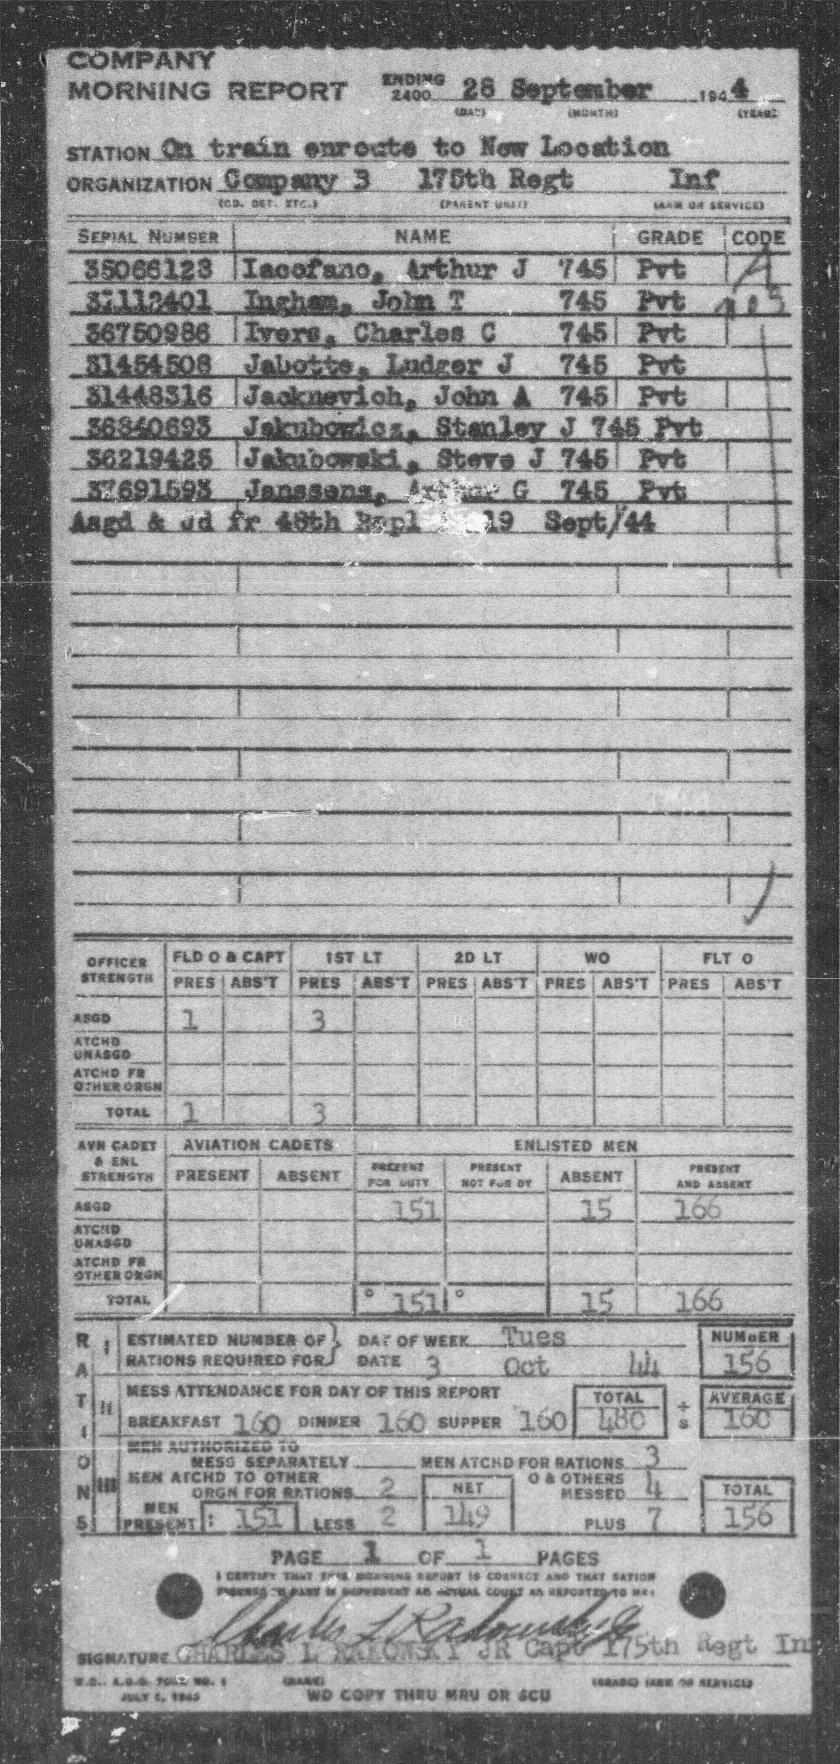 COMPANY
MORNING REPORT ENDING 2400 28 September 1944
(DAY) (MONTH) (YEAR)
STATION On train enroute to New Location
ORGANIZATION Company 3 175th Regt Inf
(CO. DET. ETC.) (PARENT UNIT) (ARM OR SERVICE)
SERIAL NUMBER NAME GRADE CODE
35066123 Iacofano, Arthur J 745 Pvt A
37112401 Ingham, John T 745 Pvt
36750986 Ivers, Charles C 745 Pvt
31454508 Jabotte, Ludger J 745 Pvt
31448316 Jacknevich, John A 745 Pvt
36840693 Jakubowicz, Stanley J 745 Pvt
36219425 Jakubowski, Steve J 745 Pvt
37691593 Janssens, Arthur G 745 Pvt
Asgd & Jd fr 48th Repl 19 Sept/44
OFFICER STRENGTH FLD O & CAPT 1ST LT 2D LT WO FLT O
PRES ABS'T PRES ABS'T PRES ABS'T PRES ABS'T PRES ABS'T
ASGD 1 3
ATCHD UNASGD
ATCHD FR OTHER ORGN
TOTAL 1 3
AVN CADET & ENL STRENGTH AVIATION CADETS ENLISTED MEN
PRESENT ABSENT PRESENT FOR DUTY PRESENT NOT FOR DY ABSENT PRESENT AND ABSENT
ASGD 151 15 166
ATCHD UNASGD
ATCHD FR OTHER ORGN
TOTAL 151 15 166
RATIONS
I ESTIMATED NUMBER OF RATIONS REQUIRED FOR } DAY OF WEEK Tues NUMBER
DATE 3 Oct 44 156
II MESS ATTENDANCE FOR DAY OF THIS REPORT TOTAL ÷ AVERAGE
BREAKFAST 160 DINNER 160 SUPPER 160 480 3 160
III MEN AUTHORIZED TO MESS SEPARATELY MEN ATCHD FOR RATIONS 3
MEN ATCHD TO OTHER ORGN FOR RATIONS 2 NET O & OTHERS MESSED 4 TOTAL
MEN PRESENT: 151 LESS 2 149 PLUS 7 156
PAGE 1 OF 1 PAGES
I CERTIFY THAT THIS MORNING REPORT IS CORRECT AND THAT RATION
FIGURES IN PART III REPRESENT AN ACTUAL COUNT AS REPORTED TO ME:
Charles L Rakowsky Jr
SIGNATURE CHARLES L RAKOWSKY JR Capt 175th Regt In
W.D., A.G.O. FORM NO. 1 (NAME) (GRADE) (ARM OR SERVICE)
JULY 1, 1943 WD COPY THRU MRU OR SCU